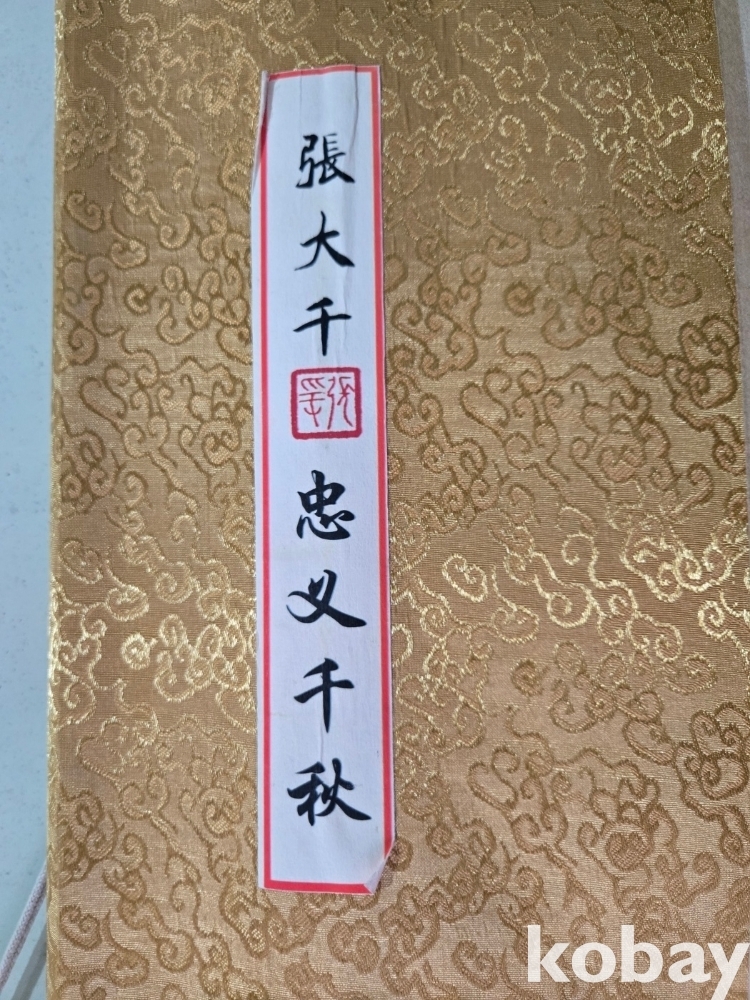 張大千
忠义千秋
kobay